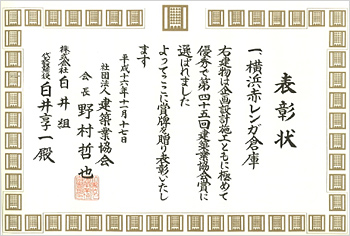 表彰状
一、横浜赤レンガ倉庫
右建物は企画設計施工ともに極めて
優秀で第四十五回建築業協会賞に
選ばれました
よってここに賞牌を贈り表彰いたし
ます
平成十六年十一月十七日
社団法人 建築業協会
会長 野村哲也
株式会社 白井組
代表取締役 白井享一殿